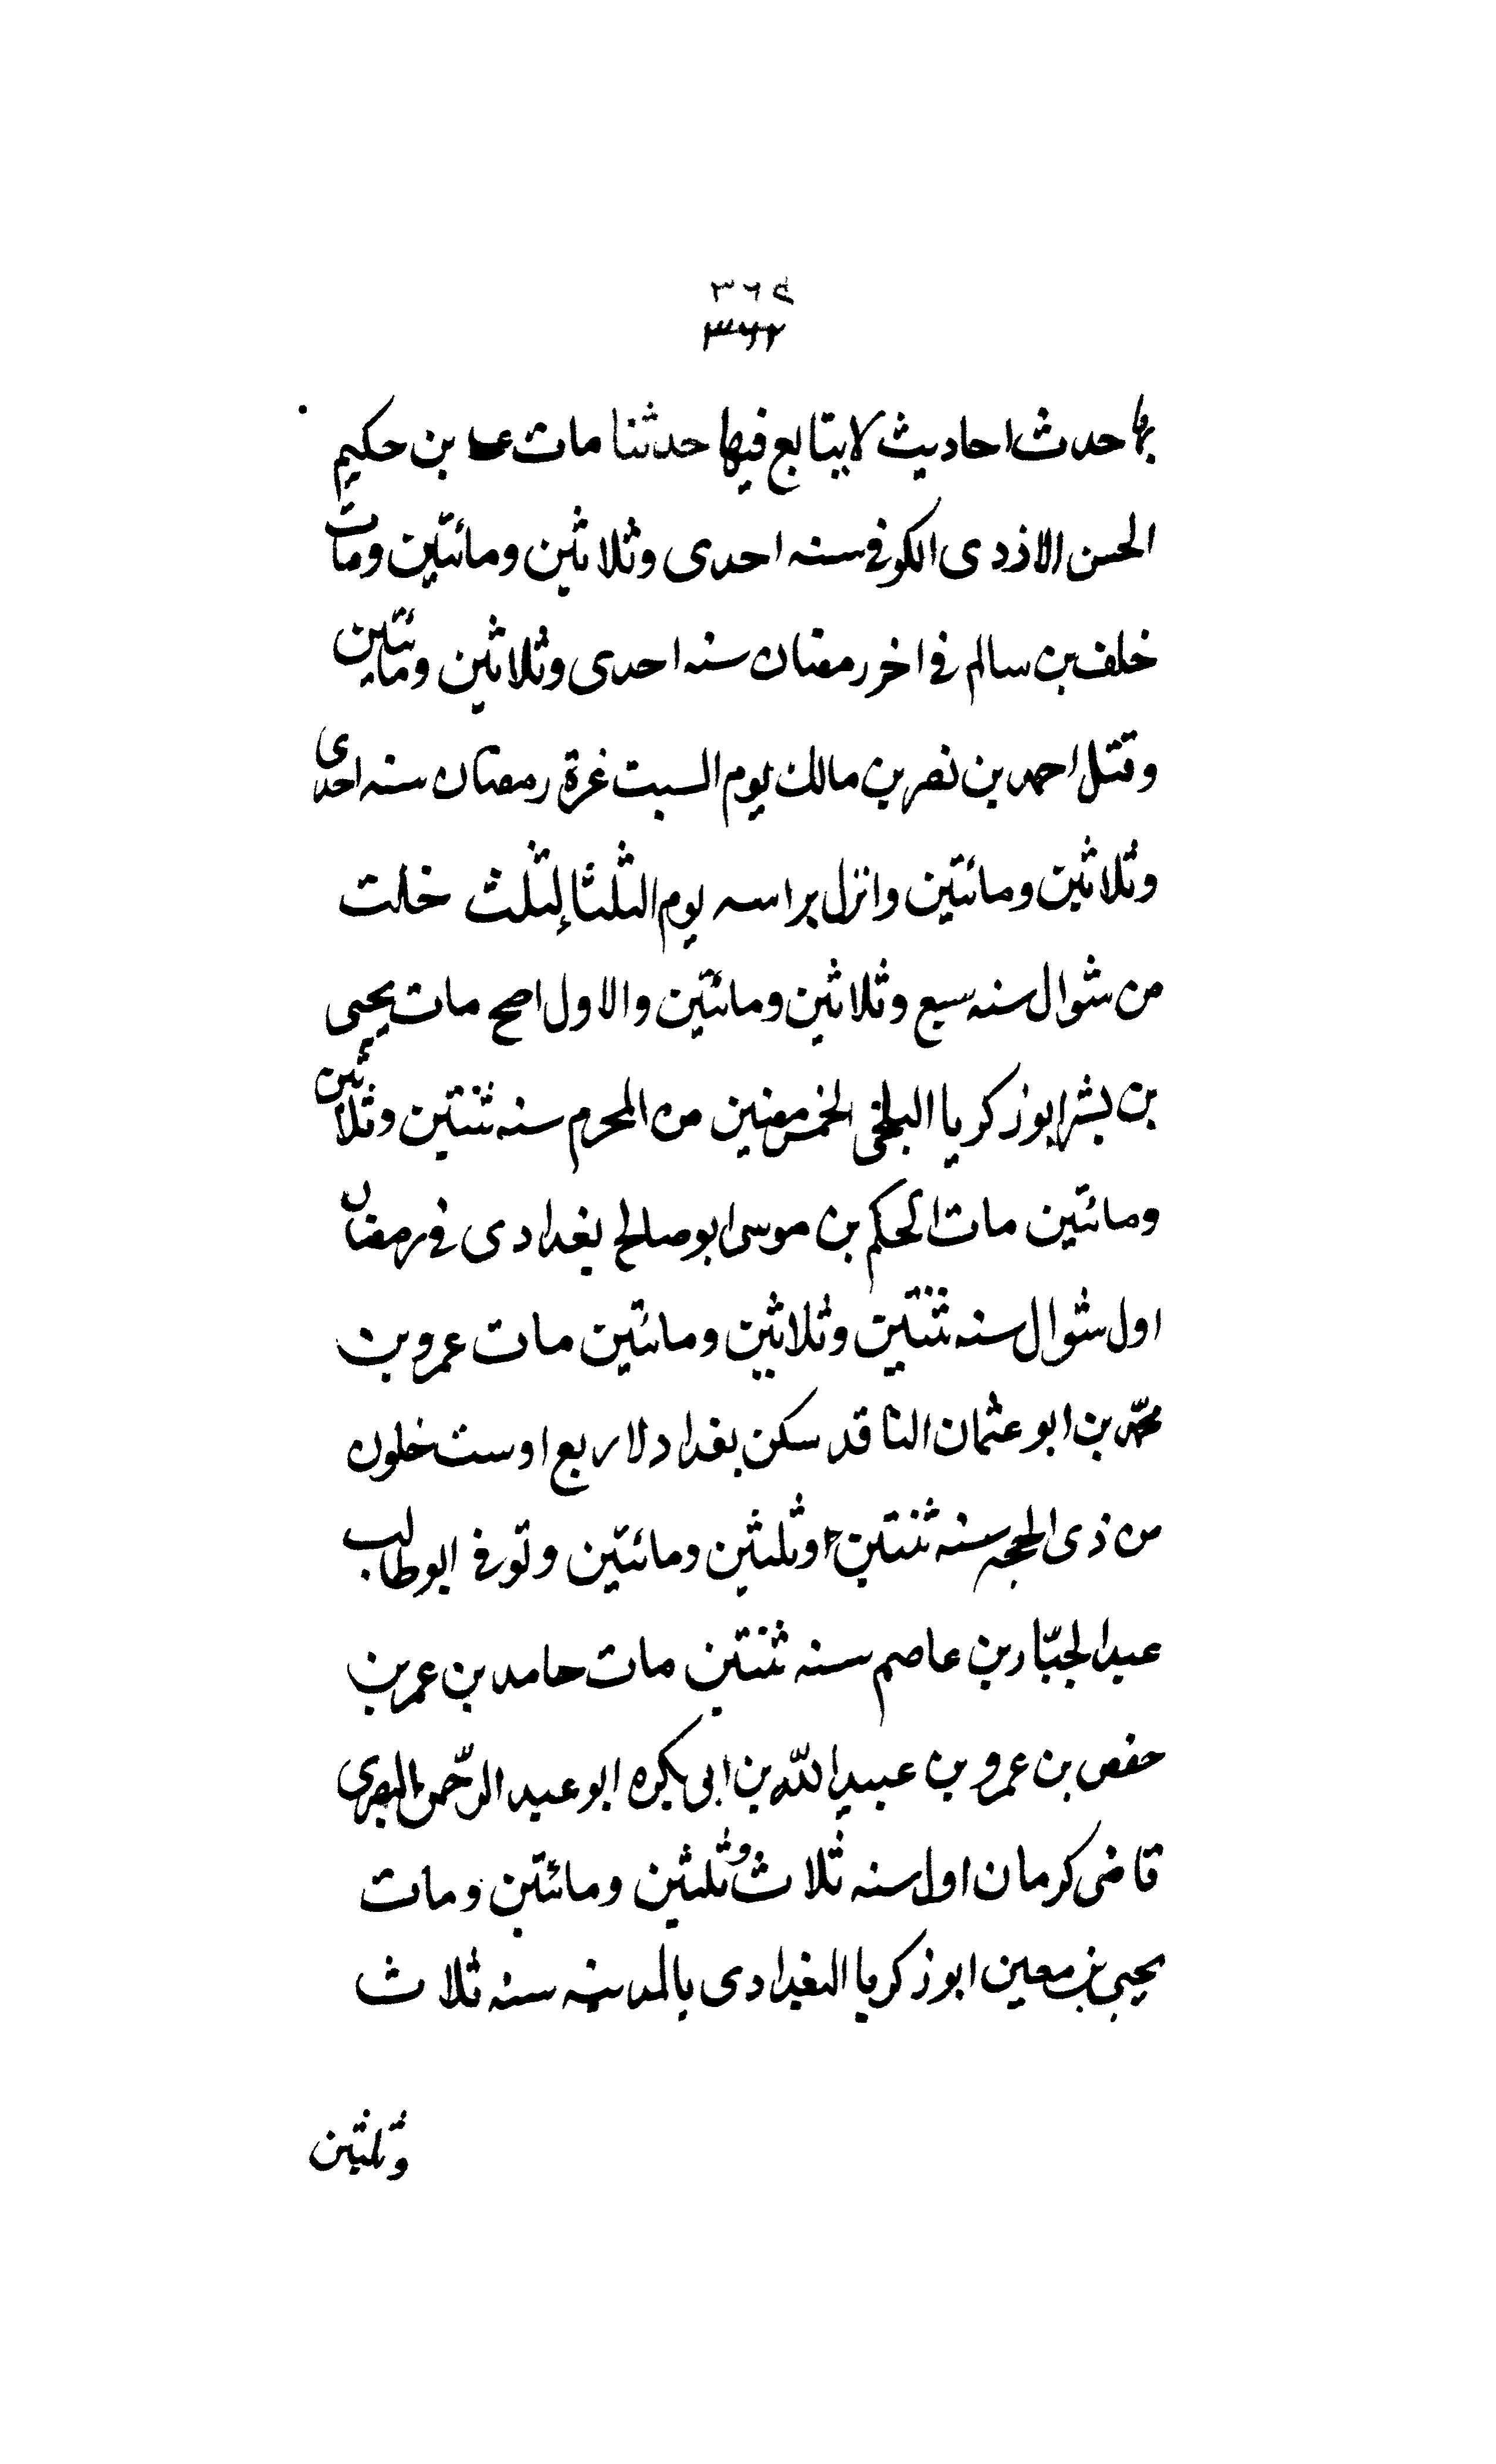 ٣٦٩
٣٦٢
بها حدث احاديث لا يتابع فيها حدثنا مات بن حكيم
الحسن الازدى الكوفى سنه احدى وثلاثين ومائتين ومات
خلف بن سالم فى اخر رمضان سنه احدى وثلاثين ومائتين
وقتل احمد بن نصر بن مالك يوم السبت غرة رمضان سنه احدى
وثلاثين ومائتين وانزل براسه يوم الثلثا لثلث خلت
من شوال سنه سبع وثلاثين ومائتين والاول اصح مات يحيى
بن بشر ابو زكريا البلخى لخمس مضين من المحرم سنه ثنتين وثلاثين
ومائتين مات الحكم بن موسى ابو صالح بغدادى فى رمضان
اول شوال سنه ثنتين وثلاثين ومائتين مات عمرو بن
محمّد بن ابو عثمان الناقد سكن بغداد لاربع او ست خلون
من ذى الحجه سنه ثنتين وثلثين ومائتين وتوفى ابو طالب
عبد الجبّار بن عاصم سنه ثنتين مات حامد بن عمر بن
حفص بن عمرو بن عبيد اللّه بن ابى بكره ابو عبد الرّحمن البصرى
قاضى كرمان اول سنه ثلاث وثلثين ومائتين ومات
يحيى بن معين ابو زكريا البغدادى بالمدينه سنه ثلاث
وثلثين